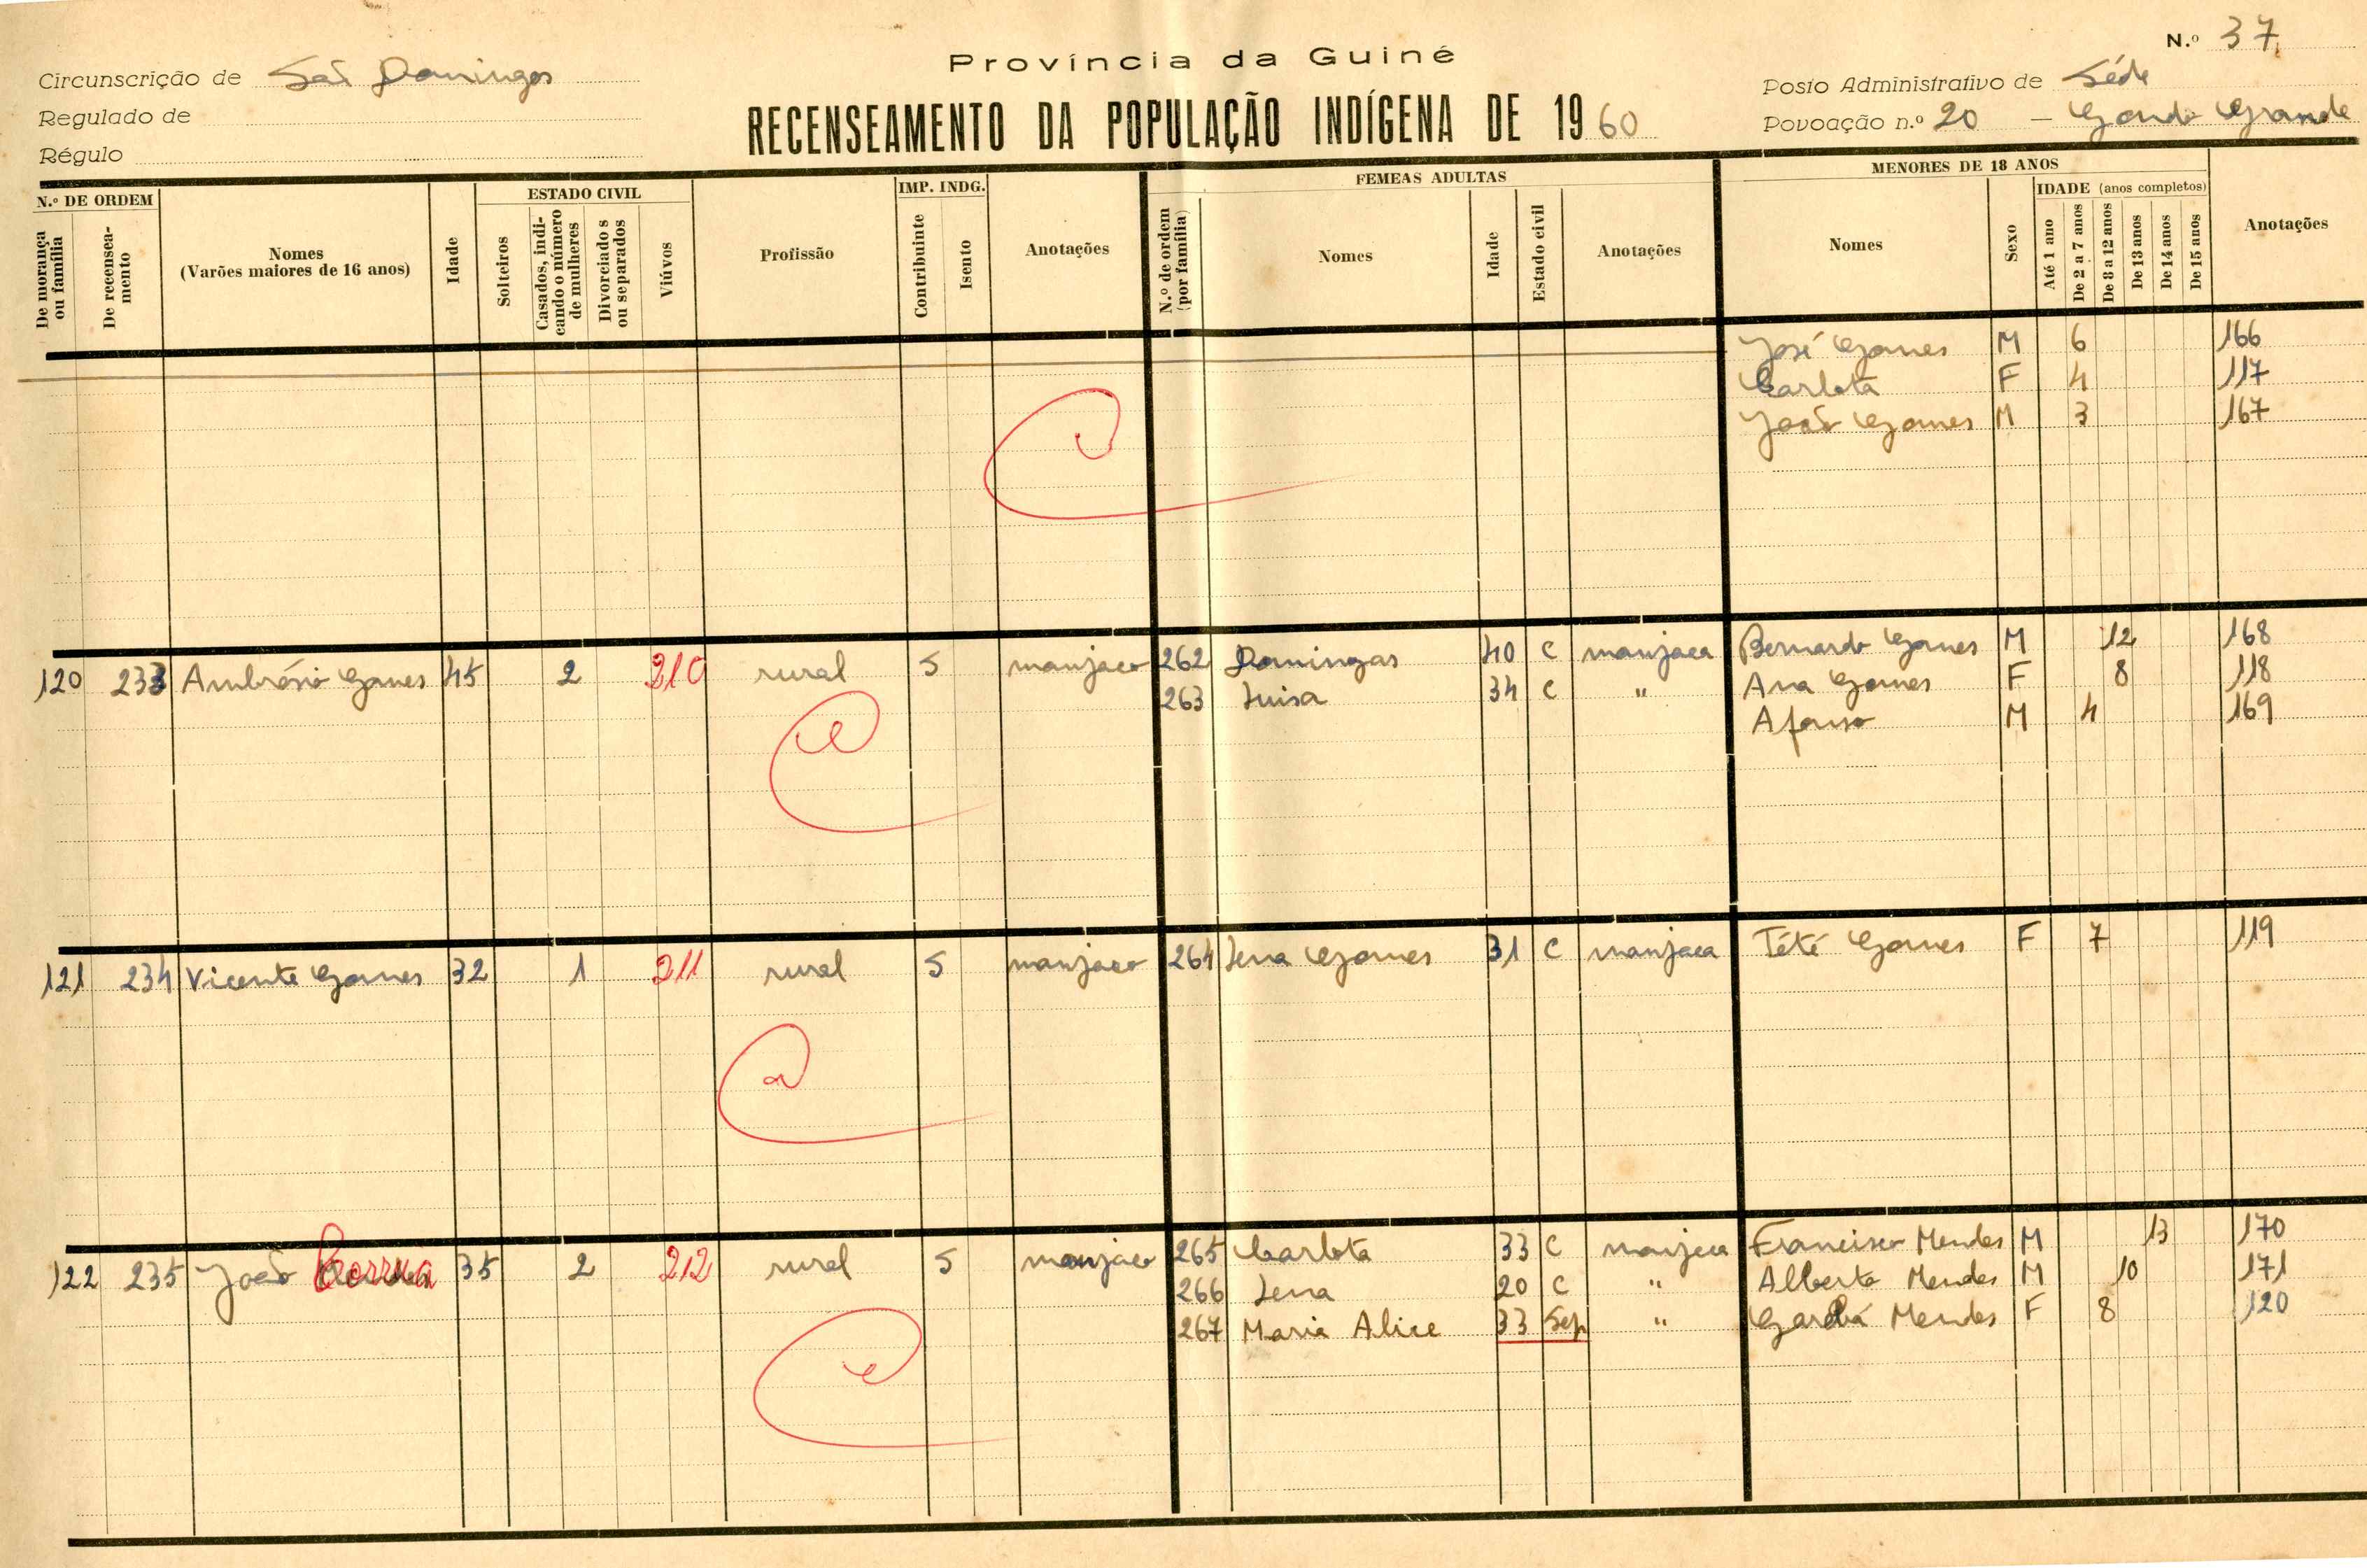 N.º 37
Província da Guiné
Circunscrição de São Domingos
Posto Administrativo de Séde
Regulado de
RECENSEAMENTO DA POPULAÇÃO INDÍGENA DE 1960
Povoação n.º 20 — Grande
Régulo
N.º DE ORDEM
De morança ou família
De recensea-mento
Nomes
(Varões maiores de 16 anos)
Idade
ESTADO CIVIL
Solteiros
Casados, indi-cando o número de mulheres
Divorciados ou separados
Viúvos
Profissão
IMP. INDG.
Contribuinte
Isento
Anotações
FEMEAS ADULTAS
N.º de ordem (por família)
Nomes
Idade
Estado civil
Anotações
MENORES DE 18 ANOS
Nomes
Sexo
IDADE (anos completos)
Até 1 ano
De 2 a 7 anos
De 8 a 12 anos
De 13 anos
De 14 anos
De 15 anos
Anotações
José Gomes M 6 166
Carlota F 4 117
João Gomes M 3 167
120 233 Ambrósio Gomes 45 2 210 rural S manjaco 262 Domingas 40 C manjaca Bernardo Gomes M 12 168
263 Luisa 34 C " Ana Gomes F 8 118
Afonso M 4 169
121 234 Vicente Gomes 32 1 211 rural S manjaco 264 Lena Gomes 31 C manjaca Tété Gomes F 7 119
122 235 João Correia 35 2 212 rural S manjaco 265 Carlota 33 C manjaca Francisco Mendes M 13 170
266 Lena 20 C " Alberto Mendes M 10 171
267 Maria Alice 33 Sep " Mendes F 8 120